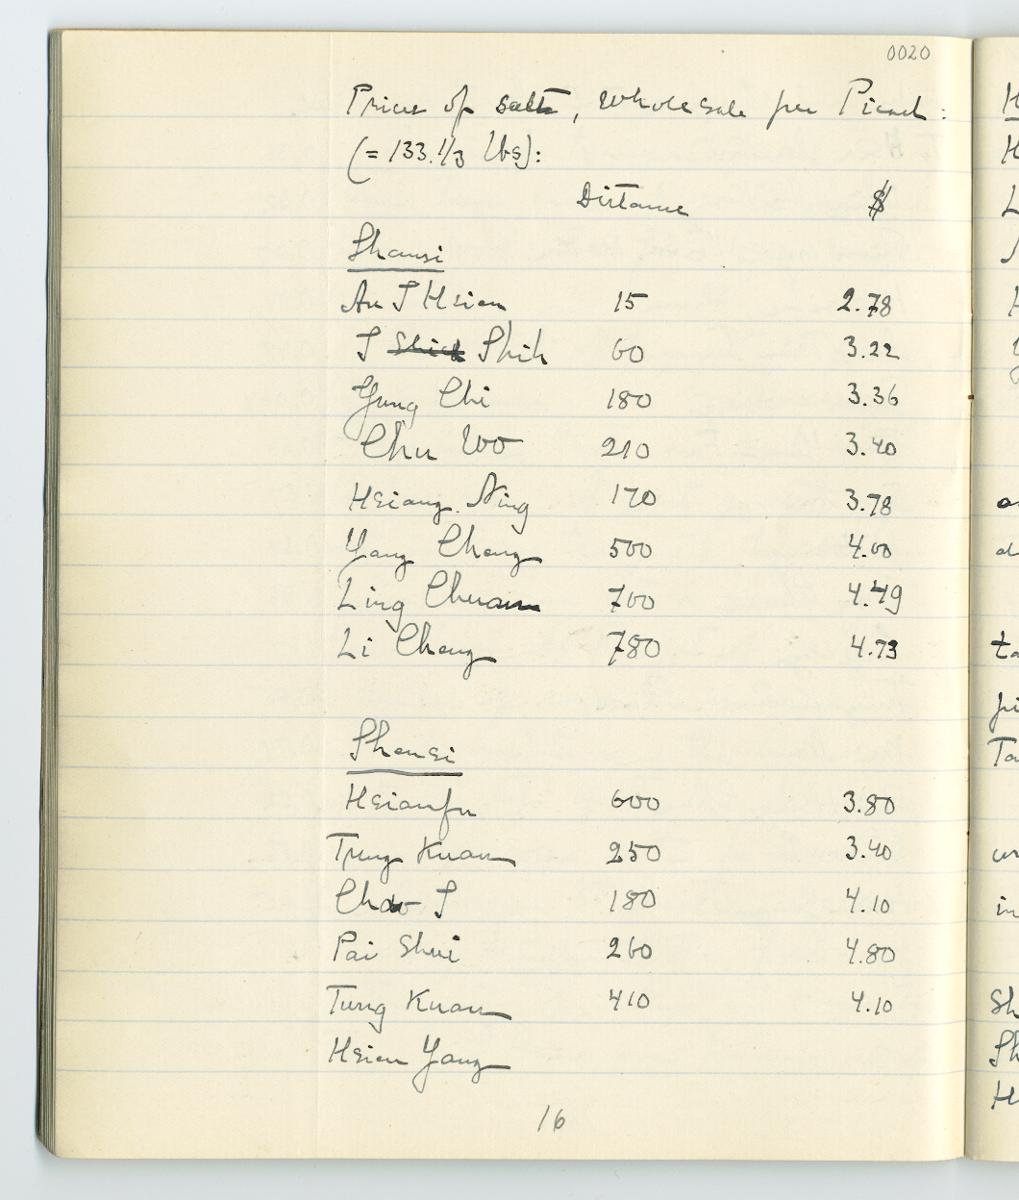 0020
Prices of salt, wholesale per Picul:
(= 133.1/3 lbs):
Distance $
Shansi
An I Hsien 15 2.78
I Shih 60 3.22
Yung Chi 180 3.36
Chu Wo 210 3.40
Hsiang Ning 170 3.78
Yang Cheng 500 4.00
Ling Chuan 700 4.49
Li Cheng 780 4.73
Shensi
Hsianfu 600 3.80
Tung Kuan 250 3.40
Chao I 180 4.10
Pai Shui 260 4.80
Tung Kuan 410 4.10
Hsien Yang
16